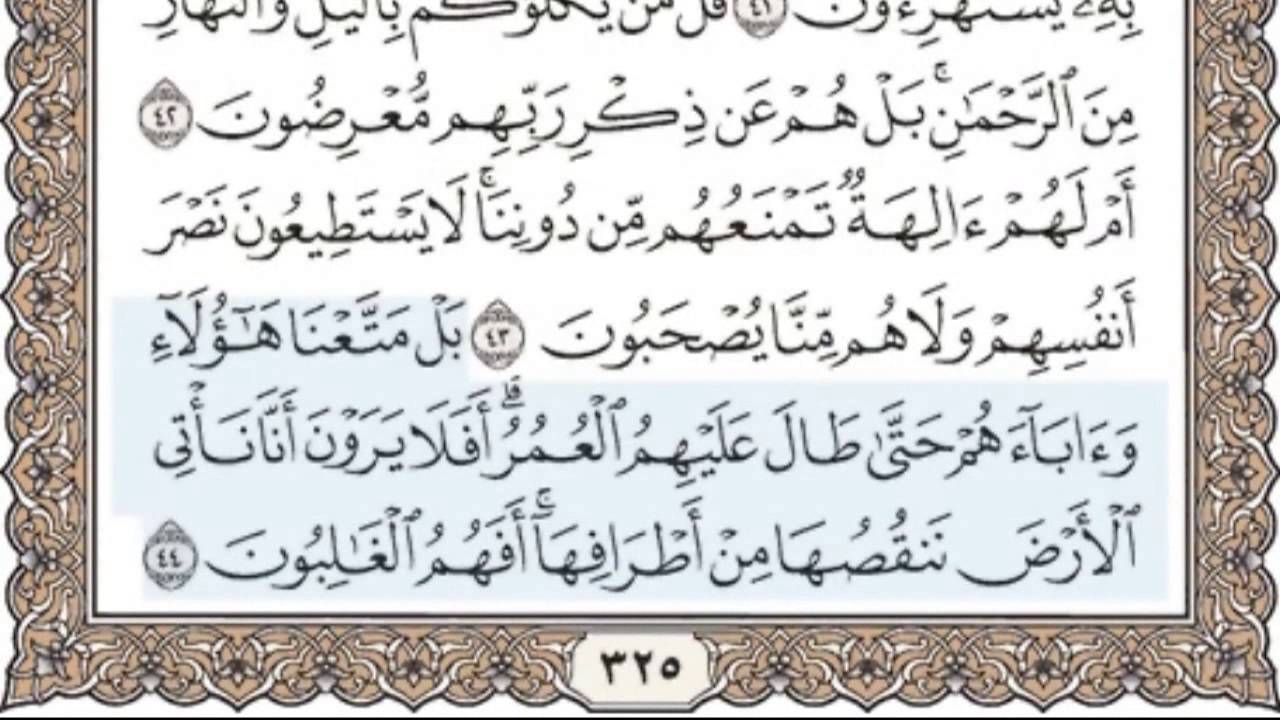 بِهِۦ يَسْتَهْزِءُونَ ٤١ قُلْ مَن يَكْلَؤُكُم بِٱلَّيْلِ وَٱلنَّهَارِ
مِنَ ٱلرَّحْمَٰنِ ۚ بَلْ هُمْ عَن ذِكْرِ رَبِّهِم مُّعْرِضُونَ ٤٢
أَمْ لَهُمْ ءَالِهَةٌ تَمْنَعُهُم مِّن دُونِنَا ۚ لَا يَسْتَطِيعُونَ نَصْرَ
أَنفُسِهِمْ وَلَا هُم مِّنَّا يُصْحَبُونَ ٤٣ بَلْ مَتَّعْنَا هَٰٓؤُلَآءِ
وَءَابَآءَهُمْ حَتَّىٰ طَالَ عَلَيْهِمُ ٱلْعُمُرُ ۗ أَفَلَا يَرَوْنَ أَنَّا نَأْتِى
ٱلْأَرْضَ نَنقُصُهَا مِنْ أَطْرَافِهَآ ۚ أَفَهُمُ ٱلْغَٰلِبُونَ ٤٤
٣٢٥